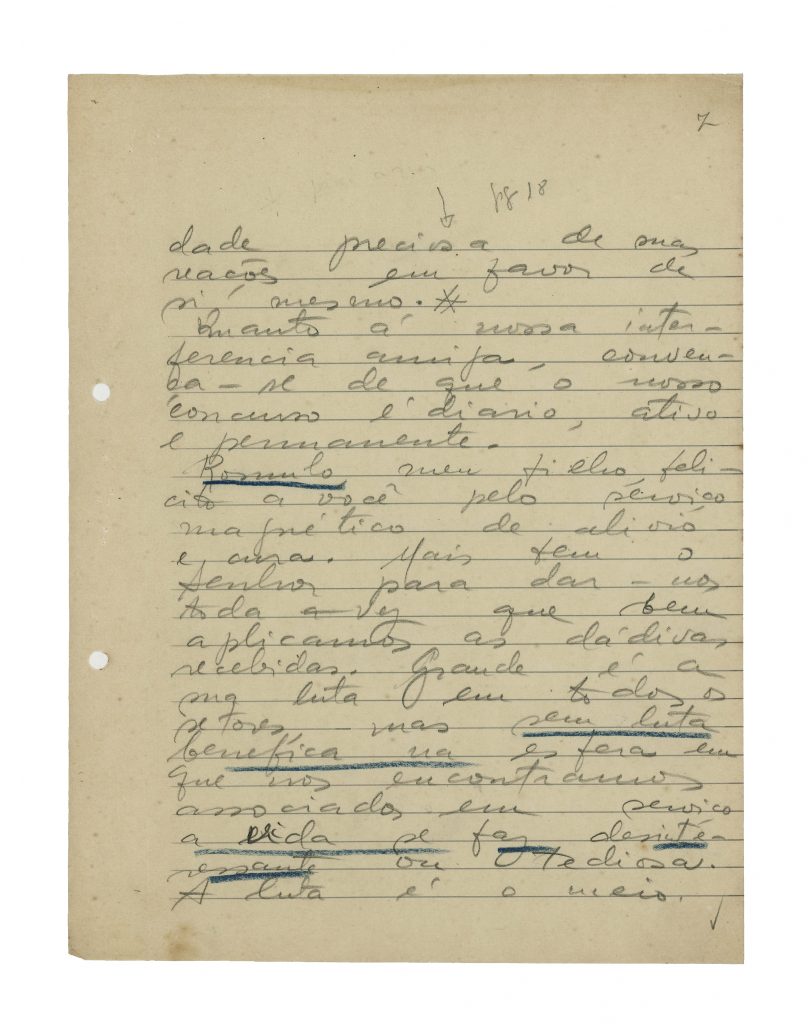 7
pg 18
dade preciosa de suas
reações em favor de
si mesmo.
Quanto á nossa inter-
ferencia amiga, conven-
ça-se de que o nosso
concurso é diario, ativo
e permanente.
Romulo meu filho, feli-
cito a você pelo serviço
magnético de alivio
e cura. Mais tem o
Senhor para dar-nos
toda a vez que bem
aplicamos as dádivas
recebidas. Grande é a
sua luta em todos os
setores, mas sem luta
benefica na esfera em
que nos encontramos
associados em serviço
a vida se faz desinte-
ressante ou tediosa.
A luta é o meio.